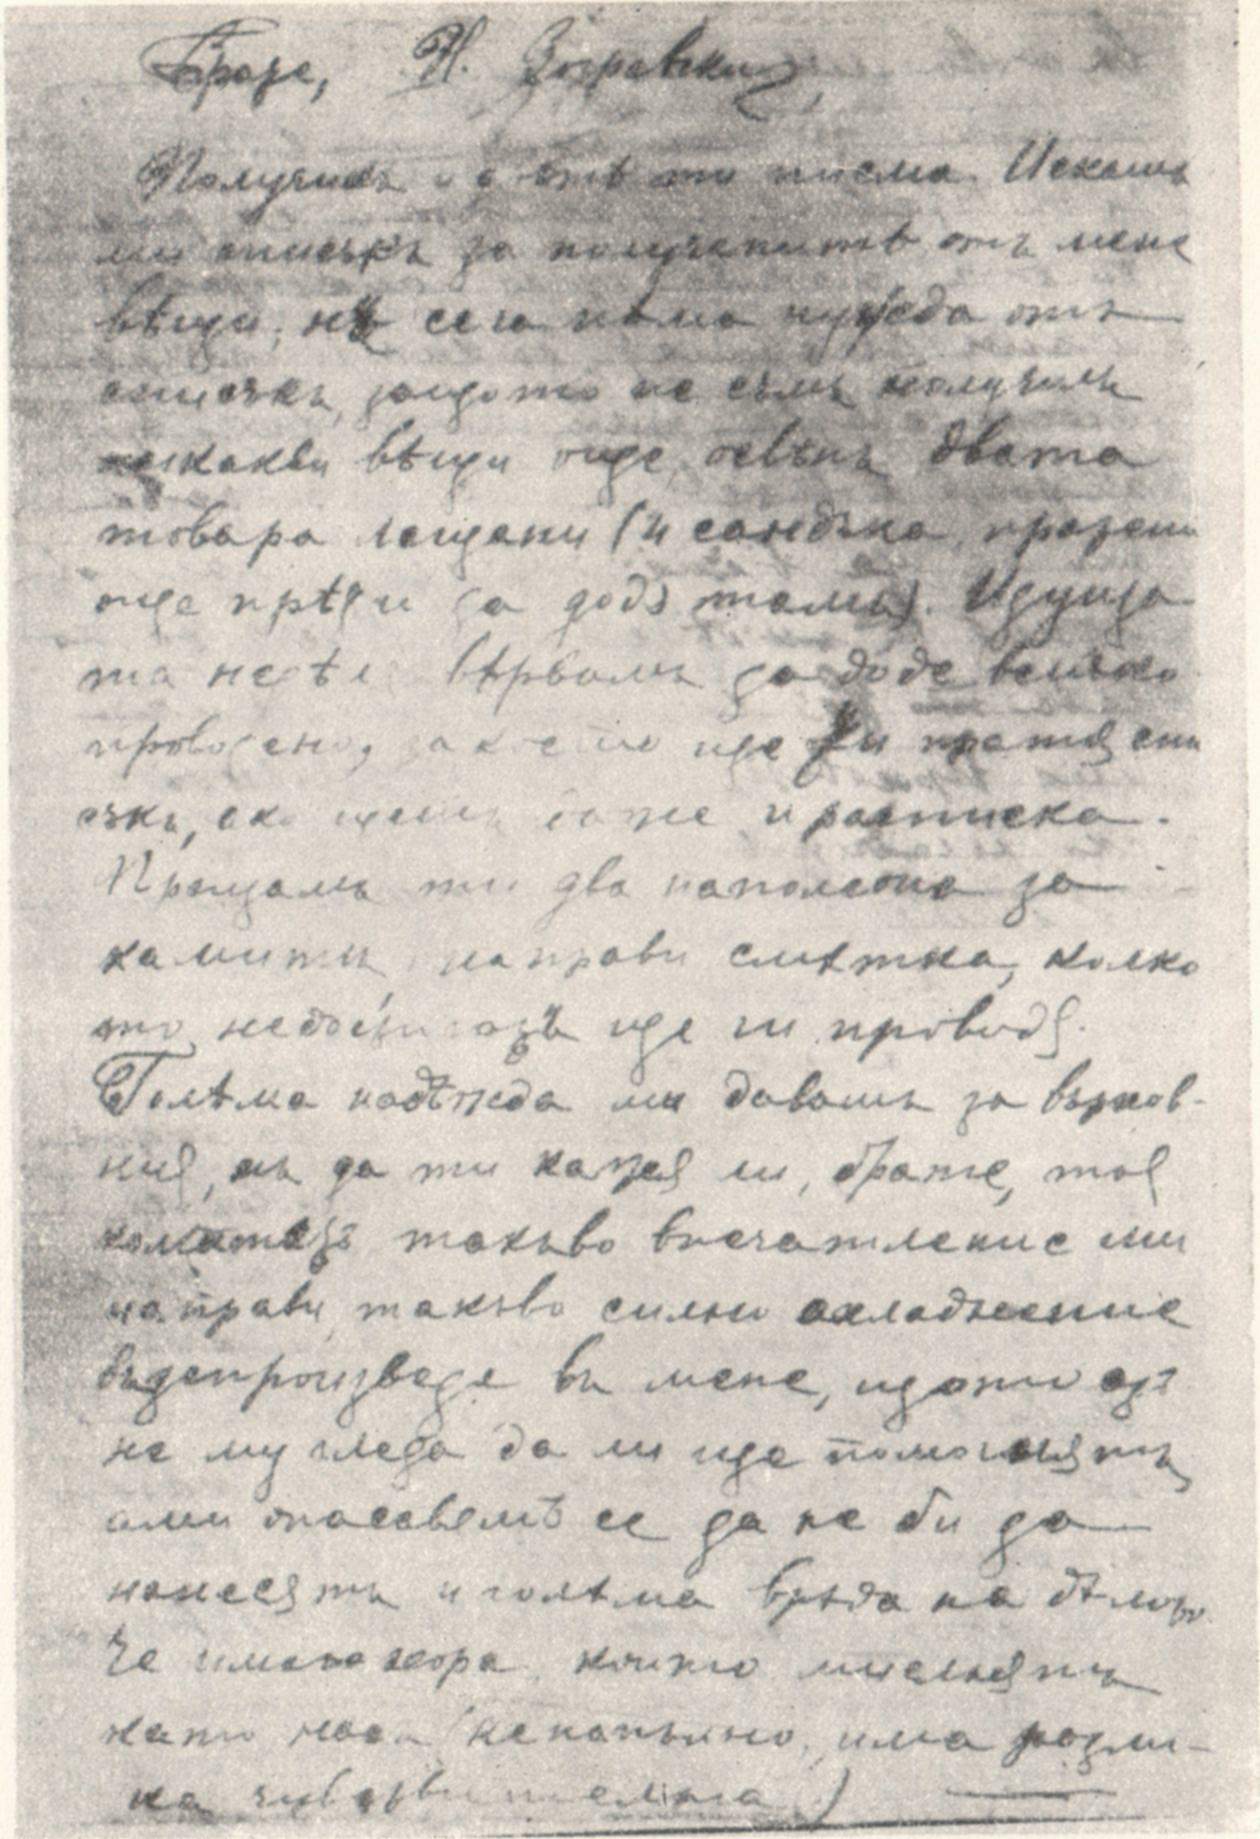 Брате, Н. Зографски,
Получихъ и двѣтѣ ти писма. Искашъ
ми списъкъ за полученитѣ отъ мене
вѣщи, нъ сега нѣма нужда отъ
списъкъ, защото не съмъ получилъ
никакви вѣщи още, освѣнъ двата
товара лещани (и сандъка, пратени
още прѣди да додѫ тамъ). Идуща
та неделя вѣрвамъ да доде всичко
проводено, за което ще ти пратѭ спи
съкъ, ако щешъ даже и расписка.
Пращамъ ти два наполеона за
камити, направи смѣтка, колко
то недостигатъ ще ги проводѭ.
Голѣма надѣжда ми давашъ за върхов-
ниѭ, нъ да ти кажѭ ли, брате, тоѭ
комитетъ такъво впечатление ми
направи, такъво силно охладнение
въспроизведе въ мене, щото азъ
не му гледа да ли ще помогнѭтъ
ами опасавамъ се да не би да
нанесѭтъ и голѣма врѣда на дѣлото
Че имало хора, които мислѭтъ
като насъ (ненапълно, има разли-
ка чувствителна)